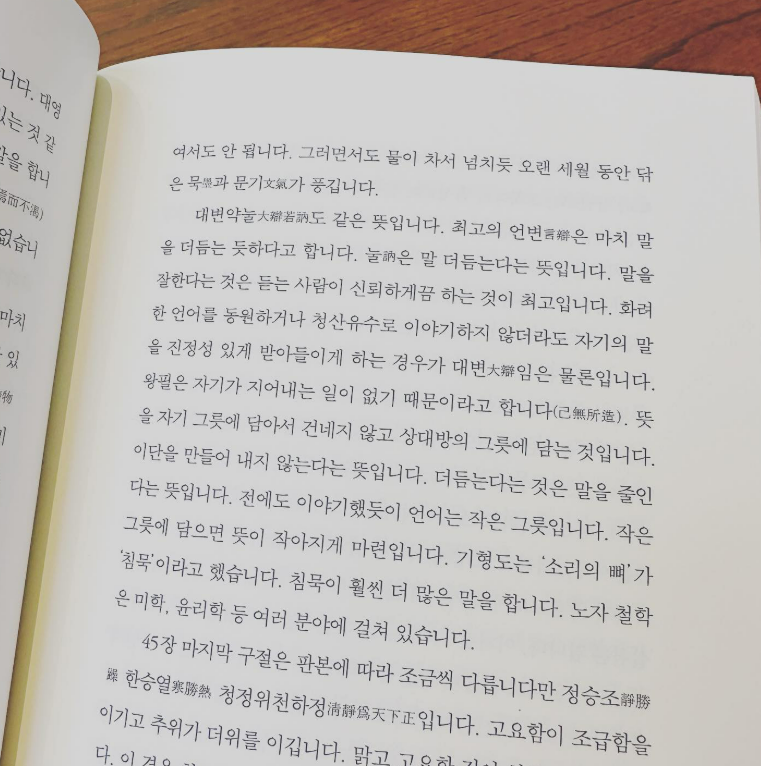 니다. 대영
있는 것 같
말을 합니
焉而不濁)
없습니
마치
있
物
여서도 안 됩니다. 그러면서도 물이 차서 넘치듯 오랜 세월 동안 닦
은 묵墨과 문기文氣가 풍깁니다.
대변약눌大辯若訥도 같은 뜻입니다. 최고의 언변言辯은 마치 말
을 더듬는 듯하다고 합니다. 눌訥은 말 더듬는다는 뜻입니다. 말을
잘한다는 것은 듣는 사람이 신뢰하게끔 하는 것이 최고입니다. 화려
한 언어를 동원하거나 청산유수로 이야기하지 않더라도 자기의 말
을 진정성 있게 받아들이게 하는 경우가 대변大辯임은 물론입니다.
왕필은 자기가 지어내는 일이 없기 때문이라고 합니다(己無所造). 뜻
을 자기 그릇에 담아서 건네지 않고 상대방의 그릇에 담는 것입니다.
이단을 만들어 내지 않는다는 뜻입니다. 더듬는다는 것은 말을 줄인
다는 뜻입니다. 전에도 이야기했듯이 언어는 작은 그릇입니다. 작은
그릇에 담으면 뜻이 작아지게 마련입니다. 기형도는 ‘소리의 뼈’가
‘침묵’이라고 했습니다. 침묵이 훨씬 더 많은 말을 합니다. 노자 철학
은 미학, 윤리학 등 여러 분야에 걸쳐 있습니다.
45장 마지막 구절은 판본에 따라 조금씩 다릅니다만 정승조靜勝
躁 한승열寒勝熱 청정위천하정淸靜爲天下正입니다. 고요함이 조급함을
이기고 추위가 더위를 이깁니다. 맑고 고요한
다. 이